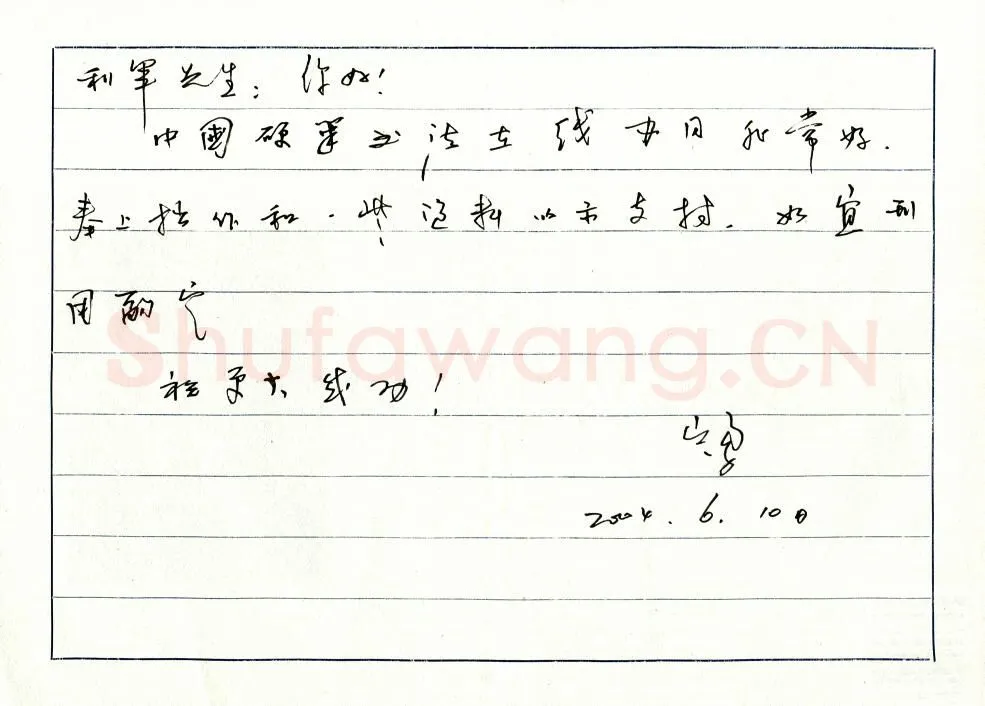 利军先生：你好！
中國硬筆书法在线办得非常好.
奉上拙作和一些资料以示支持. 如宜刊
用酌定
祝更大成功！
2004. 6. 10日
Shufawang.CN